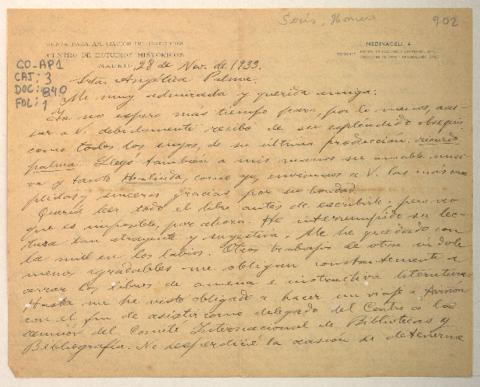 Solís, Homero
902
JUNTA PARA AMPLIACIÓN DE ESTUDIOS
CENTRO DE ESTUDIOS HISTÓRICOS
MEDINACELI, 4
MADRID, 28 de Nov. de 1933.
CO-AP1
CAJ: 3
DOC: 840
FOL: 1
Srta. Angélica Palma.
Mi muy admirada y querida amiga:
Ya no espero más tiempo para, por lo menos, acu-
sar a V. debidamente recibo de su espléndido obsequio,
como todos los suyos, de su última producción, Ricardo
Palma. Llegó también a mis manos su amable misi-
va y tanto como yo, enviamos a V. las más cum-
plidas y sinceras gracias por su bondad.
Quería leer todo el libro antes de escribirle, pero veo
que es imposible, por ahora. He interrumpido su lec-
tura tan atrayente y sugestiva. Me he quedado con
la miel en los labios. Otros trabajos de otra índole
menos agradables me obligan constantemente a
cerrar los libros de amena e instructiva literatura.
Hasta me he visto obligado a hacer un viaje a
con el fin de asistir como delegado del Centro a la
reunión del Comité Internacional de Bibliotecas y
Bibliografía. No desperdicié la ocasión de detenerme